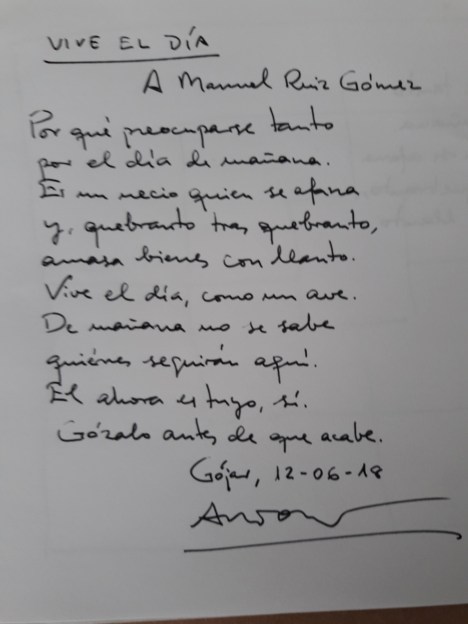 VIVE EL DÍA
A Manuel Ruiz Gómez
Por qué preocuparse tanto
por el día de mañana.
Es un necio quien se afana
y, quebranto tras quebranto,
amasa bienes con llanto.
Vive el día, como un ave.
De mañana no se sabe
quiénes seguirán aquí.
El ahora es tuyo, sí.
Gózalo antes de que acabe.
Gójar, 12-06-18